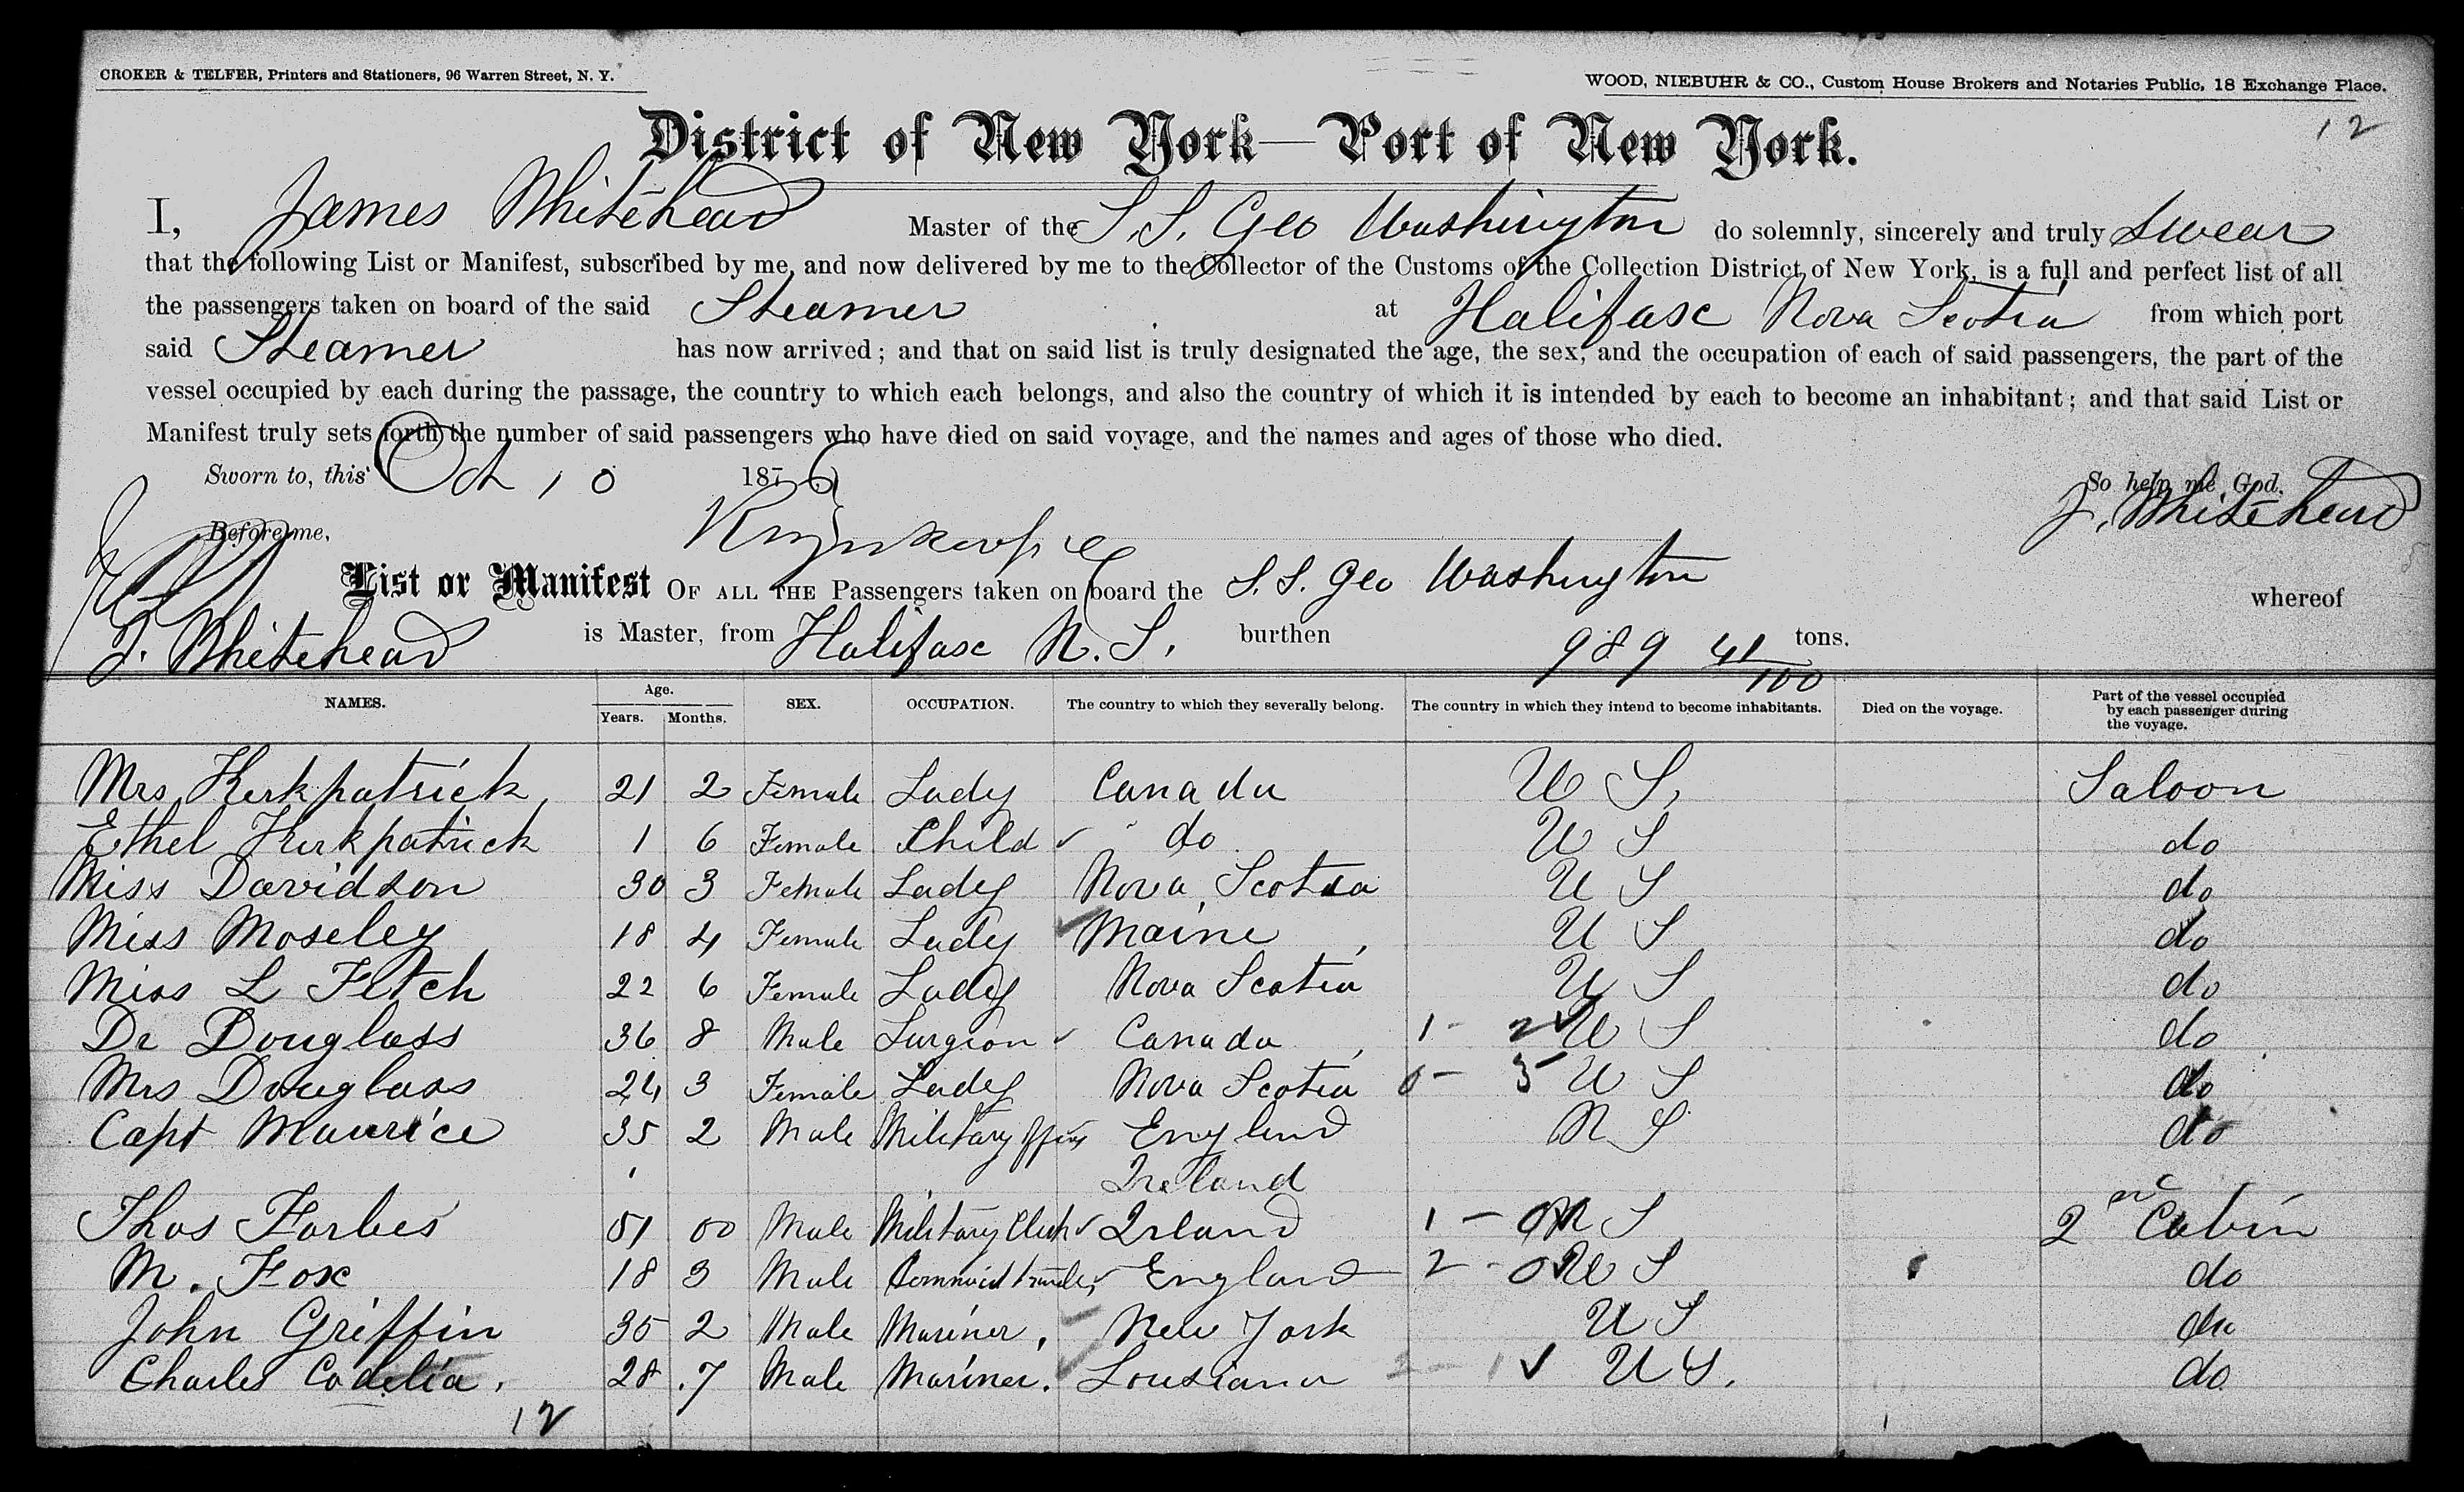 CROKER & TELFER, Printers and Stationers, 96 Warren Street, N. Y.
WOOD, NIEBUHR & CO., Custom House Brokers and Notaries Public, 18 Exchange Place.
12
District of New York—Port of New York.
I, James Whitehead Master of the S.S. Geo Washington do solemnly, sincerely and truly Swear
that the following List or Manifest, subscribed by me, and now delivered by me to the Collector of the Customs of the Collection District of New York, is a full and perfect list of all
the passengers taken on board of the said Steamer at Halifax Nova Scotia from which port
said Steamer has now arrived; and that on said list is truly designated the age, the sex, and the occupation of each of said passengers, the part of the
vessel occupied by each during the passage, the country to which each belongs, and also the country of which it is intended by each to become an inhabitant; and that said List or
Manifest truly sets forth the number of said passengers who have died on said voyage, and the names and ages of those who died.
Sworn to, this Oct 10 1876 So help me God.
J. Whitehead
Before me,
List or Manifest OF ALL THE Passengers taken on board the S.S. Geo Washington whereof
J. Whitehead is Master, from Halifax N.S. burthen 989 41/100 tons.
NAMES. Age. Years. Months. SEX. OCCUPATION. The country to which they severally belong. The country in which they intend to become inhabitants. Died on the voyage. Part of the vessel occupied by each passenger during the voyage.
Mrs Kirkpatrick, 21 2 Female Lady Canada U S, Saloon
Ethel Kirkpatrick 1 6 Female Child do U S do
Miss Davidson 30 3 Female Lady Nova Scotia U S do
Miss Moseley 18 4 Female Lady Maine U S do
Miss L Fitch 22 6 Female Lady Nova Scotia U S do
Dr Douglass 36 8 Male Surgion Canada 1 - 2 U S do
Mrs Douglass 24 3 Female Lady Nova Scotia 0 - 3 U S do
Capt Maurice 35 2 Male Military England N S do
Ireland
Thos Forbes 51 00 Male Military Clerk Irland 1 - 0 N S 2nd Cabin
M. Fox 18 3 Male England 2 - 0 U S do
John Griffin 35 2 Male Mariner, New York U S do
Charles Codelia, 28 .7 Male Mariner. Lousiana 2 - 1 U S. do
12